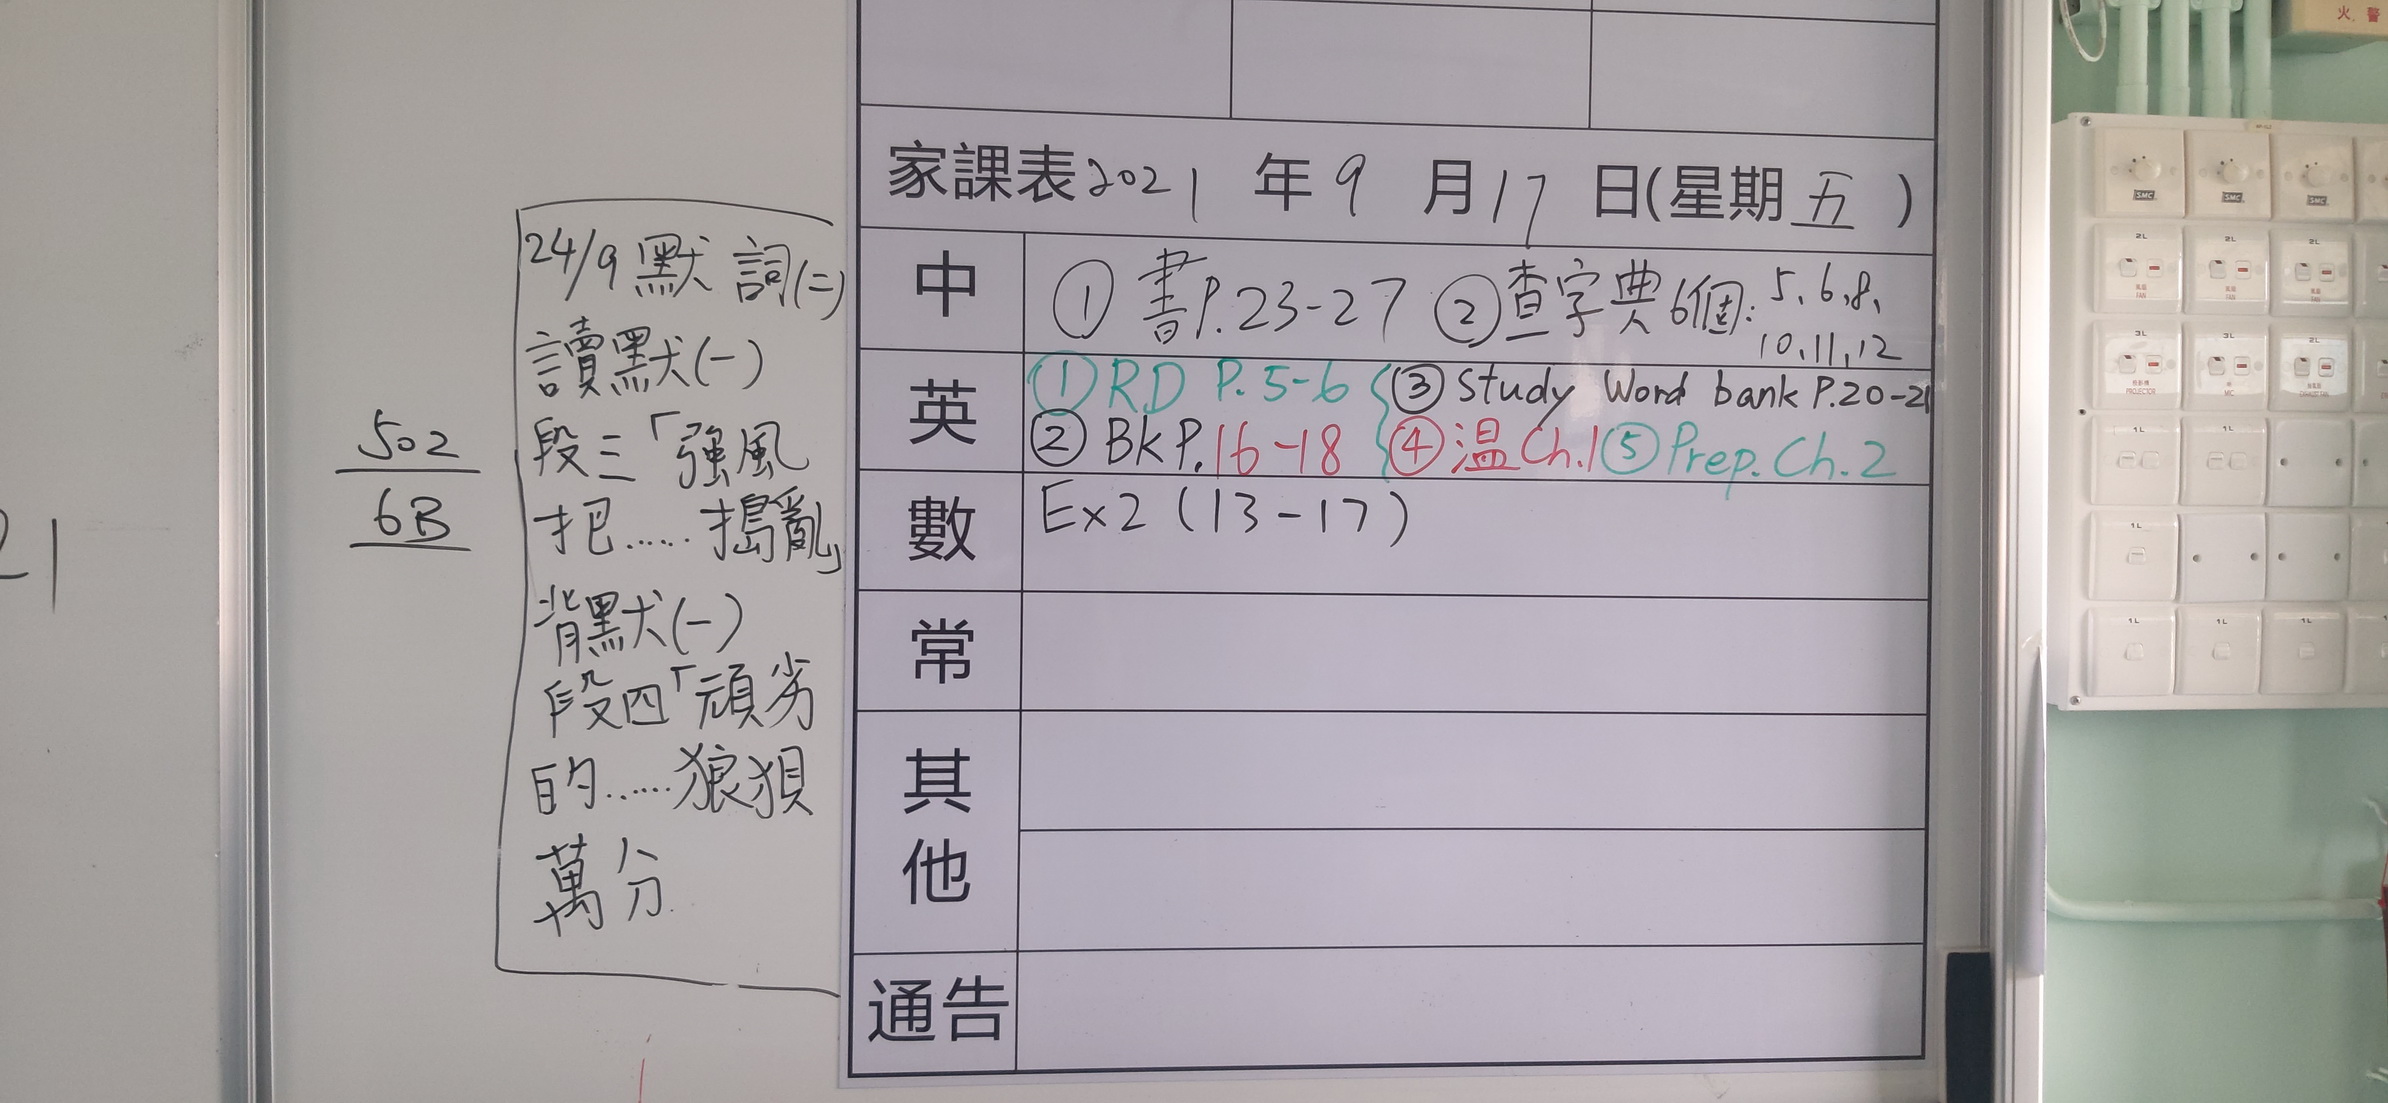 21
502
6B
24/9 默 詞(二)
讀默(一)
段三「強風
把……搗亂」
背默(一)
段四「頑劣
的……狼狽
萬分
家課表2021 年 9 月17 日(星期五)
中 ① 書P.23-27 ② 查字典6個: 5、6、8、
10、11、12
英 ① RD P.5-6 ③ Study Word bank P.20-21
② BK P.16-18 ④ 温 Ch.1 ⑤ Prep. Ch.2
數 Ex2 (13-17)
常
其
他
通告
火 警
SMC SMC SMC
2L 2L 2L
風扇 風扇 風扇
FAN FAN FAN
3L 3L 2L
PROJECTOR MIC EXHAUST FAN
1L 1L
1L
1L 1L 1L